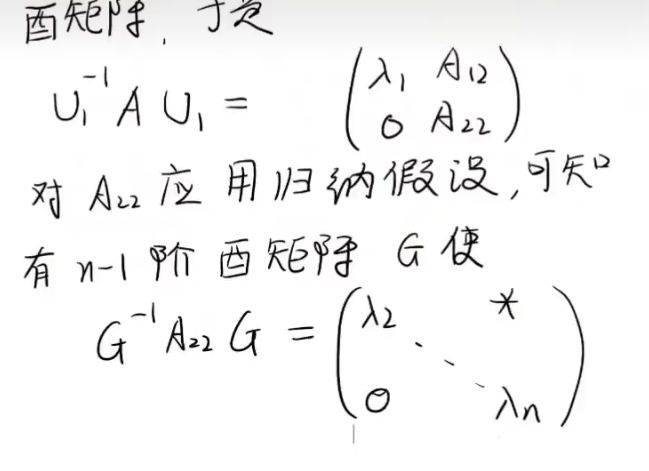 酉矩阵, 于是
U₁⁻¹ A U₁ = (λ₁ A₁₂
0 A₂₂)
对 A₂₂ 应用归纳假设,可知
有 n-1 阶 酉矩阵 G 使
G⁻¹ A₂₂ G = (λ₂ *
⋱
0 λn)